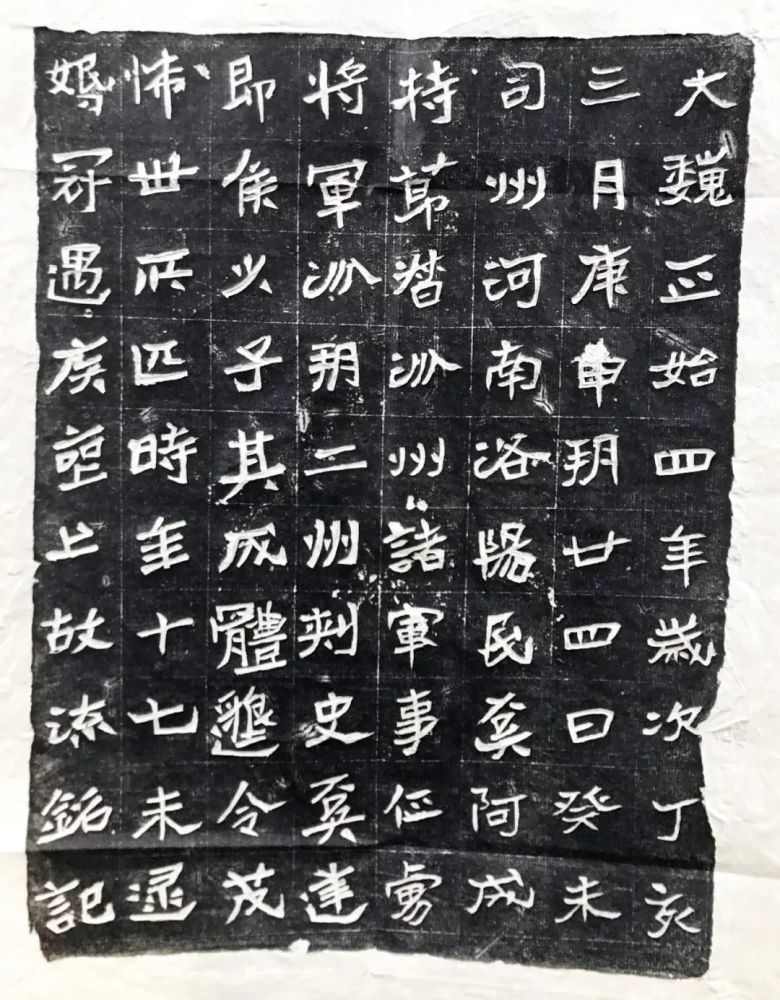 大魏正始四年歲次丁亥
三月庚申朔廿四日癸未
司州河南洛陽民奚阿成
持節督汾州諸軍事征虜
將軍汾朔二州刺史奚
即侯少子其成體令茂
怖世所匹時年十七未逯
婚冠遇疾上故流銘記